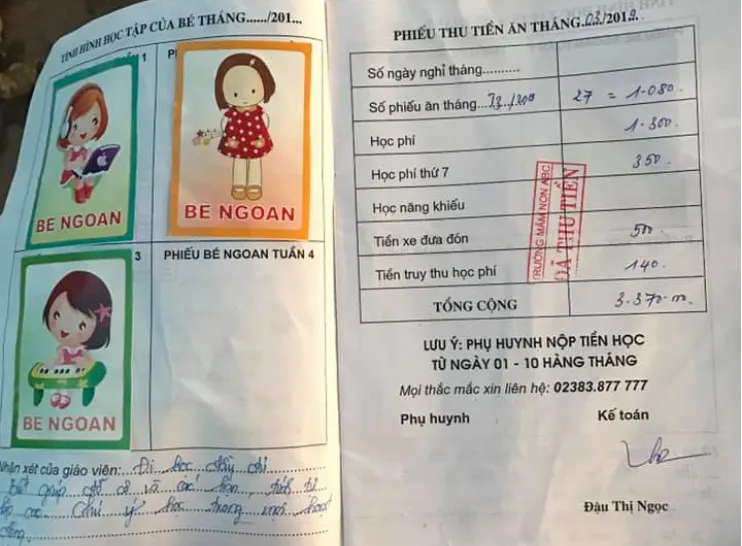 TÌNH HÌNH HỌC TẬP CỦA BÉ THÁNG....../201...
1
BÉ NGOAN
BÉ NGOAN
3
BÉ NGOAN
PHIẾU BÉ NGOAN TUẦN 4
Nhận xét của giáo viên: Đi học đầy đủ
Biết giúp đỡ cô và các bạn, tích
cực chú ý học trong mọi hoạt
động
PHIẾU THU TIỀN ĂN THÁNG.03./2019.
Số ngày nghỉ tháng..........
Số phiếu ăn tháng 27 = 1.080.
Học phí 1.300.
Học phí thứ 7 350.
Học năng khiếu
Tiền xe đưa đón 500.
Tiền truy thu học phí 140.
TỔNG CỘNG 3.370.
TRƯỜNG MẦM NON ABC
ĐÃ THU TIỀN
LƯU Ý: PHỤ HUYNH NỘP TIỀN HỌC
TỪ NGÀY 01 - 10 HÀNG THÁNG
Mọi thắc mắc xin liên hệ: 02383.877 777
Phụ huynh Kế toán
Đậu Thị Ngọc